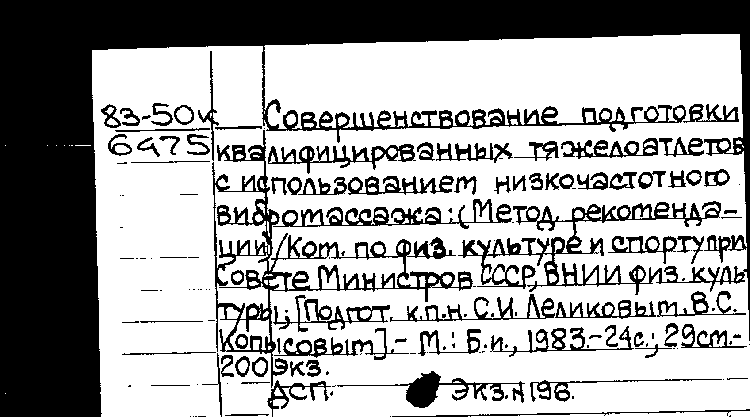 83-50к Совершенствование подготовки
6475 квалифицированных тяжелоатлетов
с использованием низкочастотного
вибромассажа: (Метод. рекоменда-
ции) /Ком. по физ. культуре и спорту при
Совете Министров СССР, ВНИИ физ. куль-
туры; [Подгот. к.п.н. С.И. Леликовым, В.С.
Копысовым]. - М.: Б.и., 1983.-24с.; 29см.-
200 экз.
ДСП. Экз.N196.